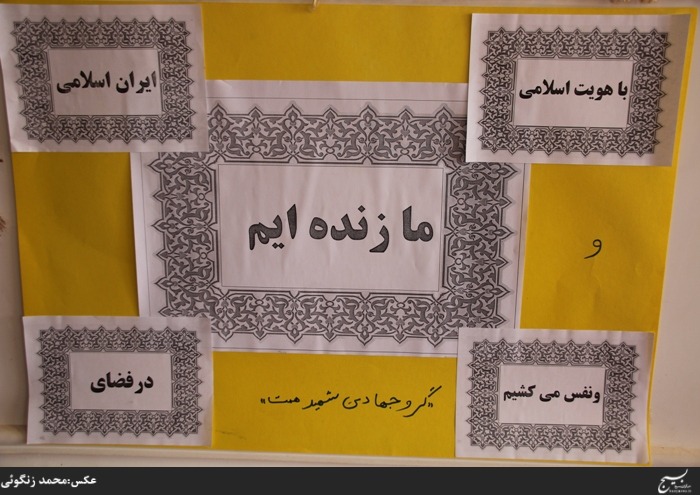 با هویت اسلامی
ایران اسلامی
ما زنده ایم
و
ونفس می کشیم
درفضای
"گروه جهادی شهید همت"
بسیج
عکس:محمد زنگوئی